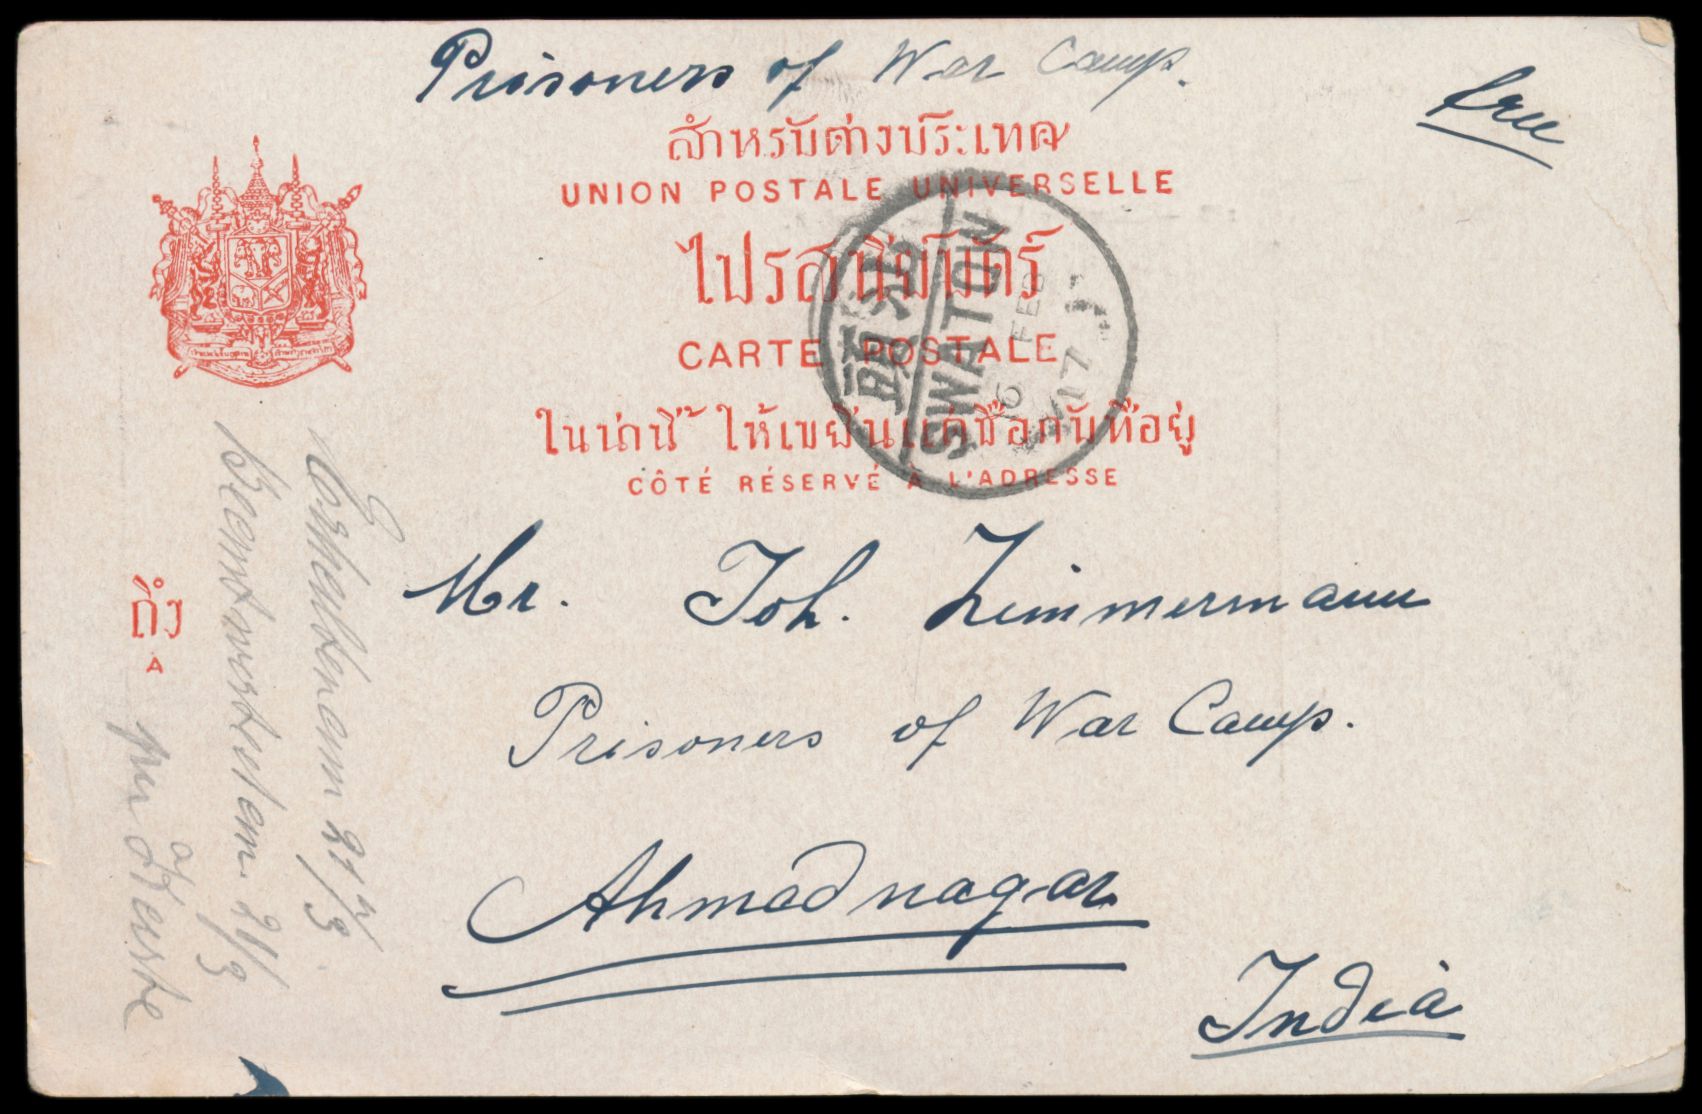 Prisoners of War Camp.
free
สำหรับต่างประเทศ
UNION POSTALE UNIVERSELLE
ไปรสนียบัตร์
CARTE POSTALE
ในน่านี้ ให้เขียนแต่ชื่อกับที่อยู่
CÔTÉ RÉSERVÉ À L'ADRESSE
SWATOW
16 FEB
17
Mr. Joh. Zimmermann
Prisoners of War Camp.
Ahmadnagar
India
ถึง
A
Beantwortet am 21/3